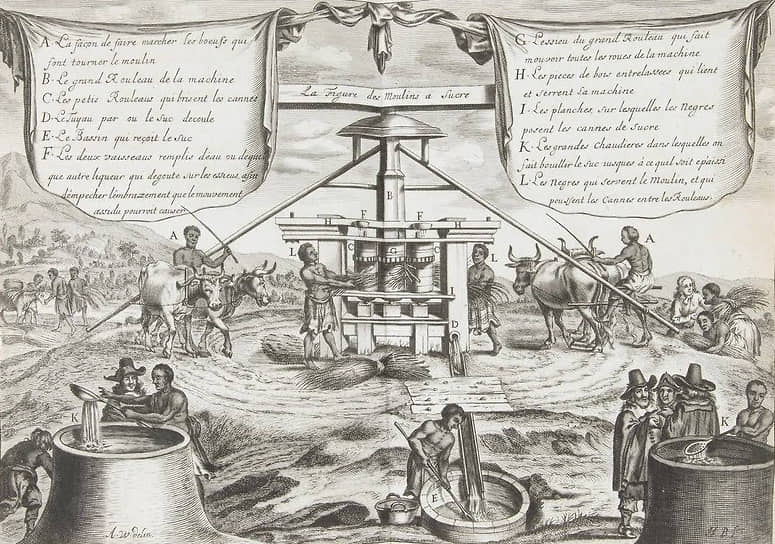 A. La façon de faire marcher les bœufs qui
font tourner le moulin
B. Le grand Rouleau de la machine
C. Les petis Rouleaus qui brisent les cannes
D. Le Tuyau par ou le suc decoule
E. Le Bassin qui reçoit le suc
F. Les deux vaisseaus remplis deau ou de que
que autre liqueur qui degoute sur les essieus, afin
dempecher lembrazement que le mouvement
assidu pourroit causer
La Figure des Moulins a Sucre
G. Lessieu du grand Rouleau qui fait
mouvoir toutes les roues de la machine
H. Les pieces de bois entrelassees qui lient
et serrent la machine
I. Les planches, sur lesquelles les Negres
posent les cannes de sucre
K. Les grandes chaudieres dans lesquelles on
fait bouillir le suc iusques à ce quil soit epaissi
L. Les Negres qui servent le Moulin, et qui
poussent les Cannes entre les Rouleaus.
B
H F F H
A L C G L A
I
D
K K
E
A. W delin.